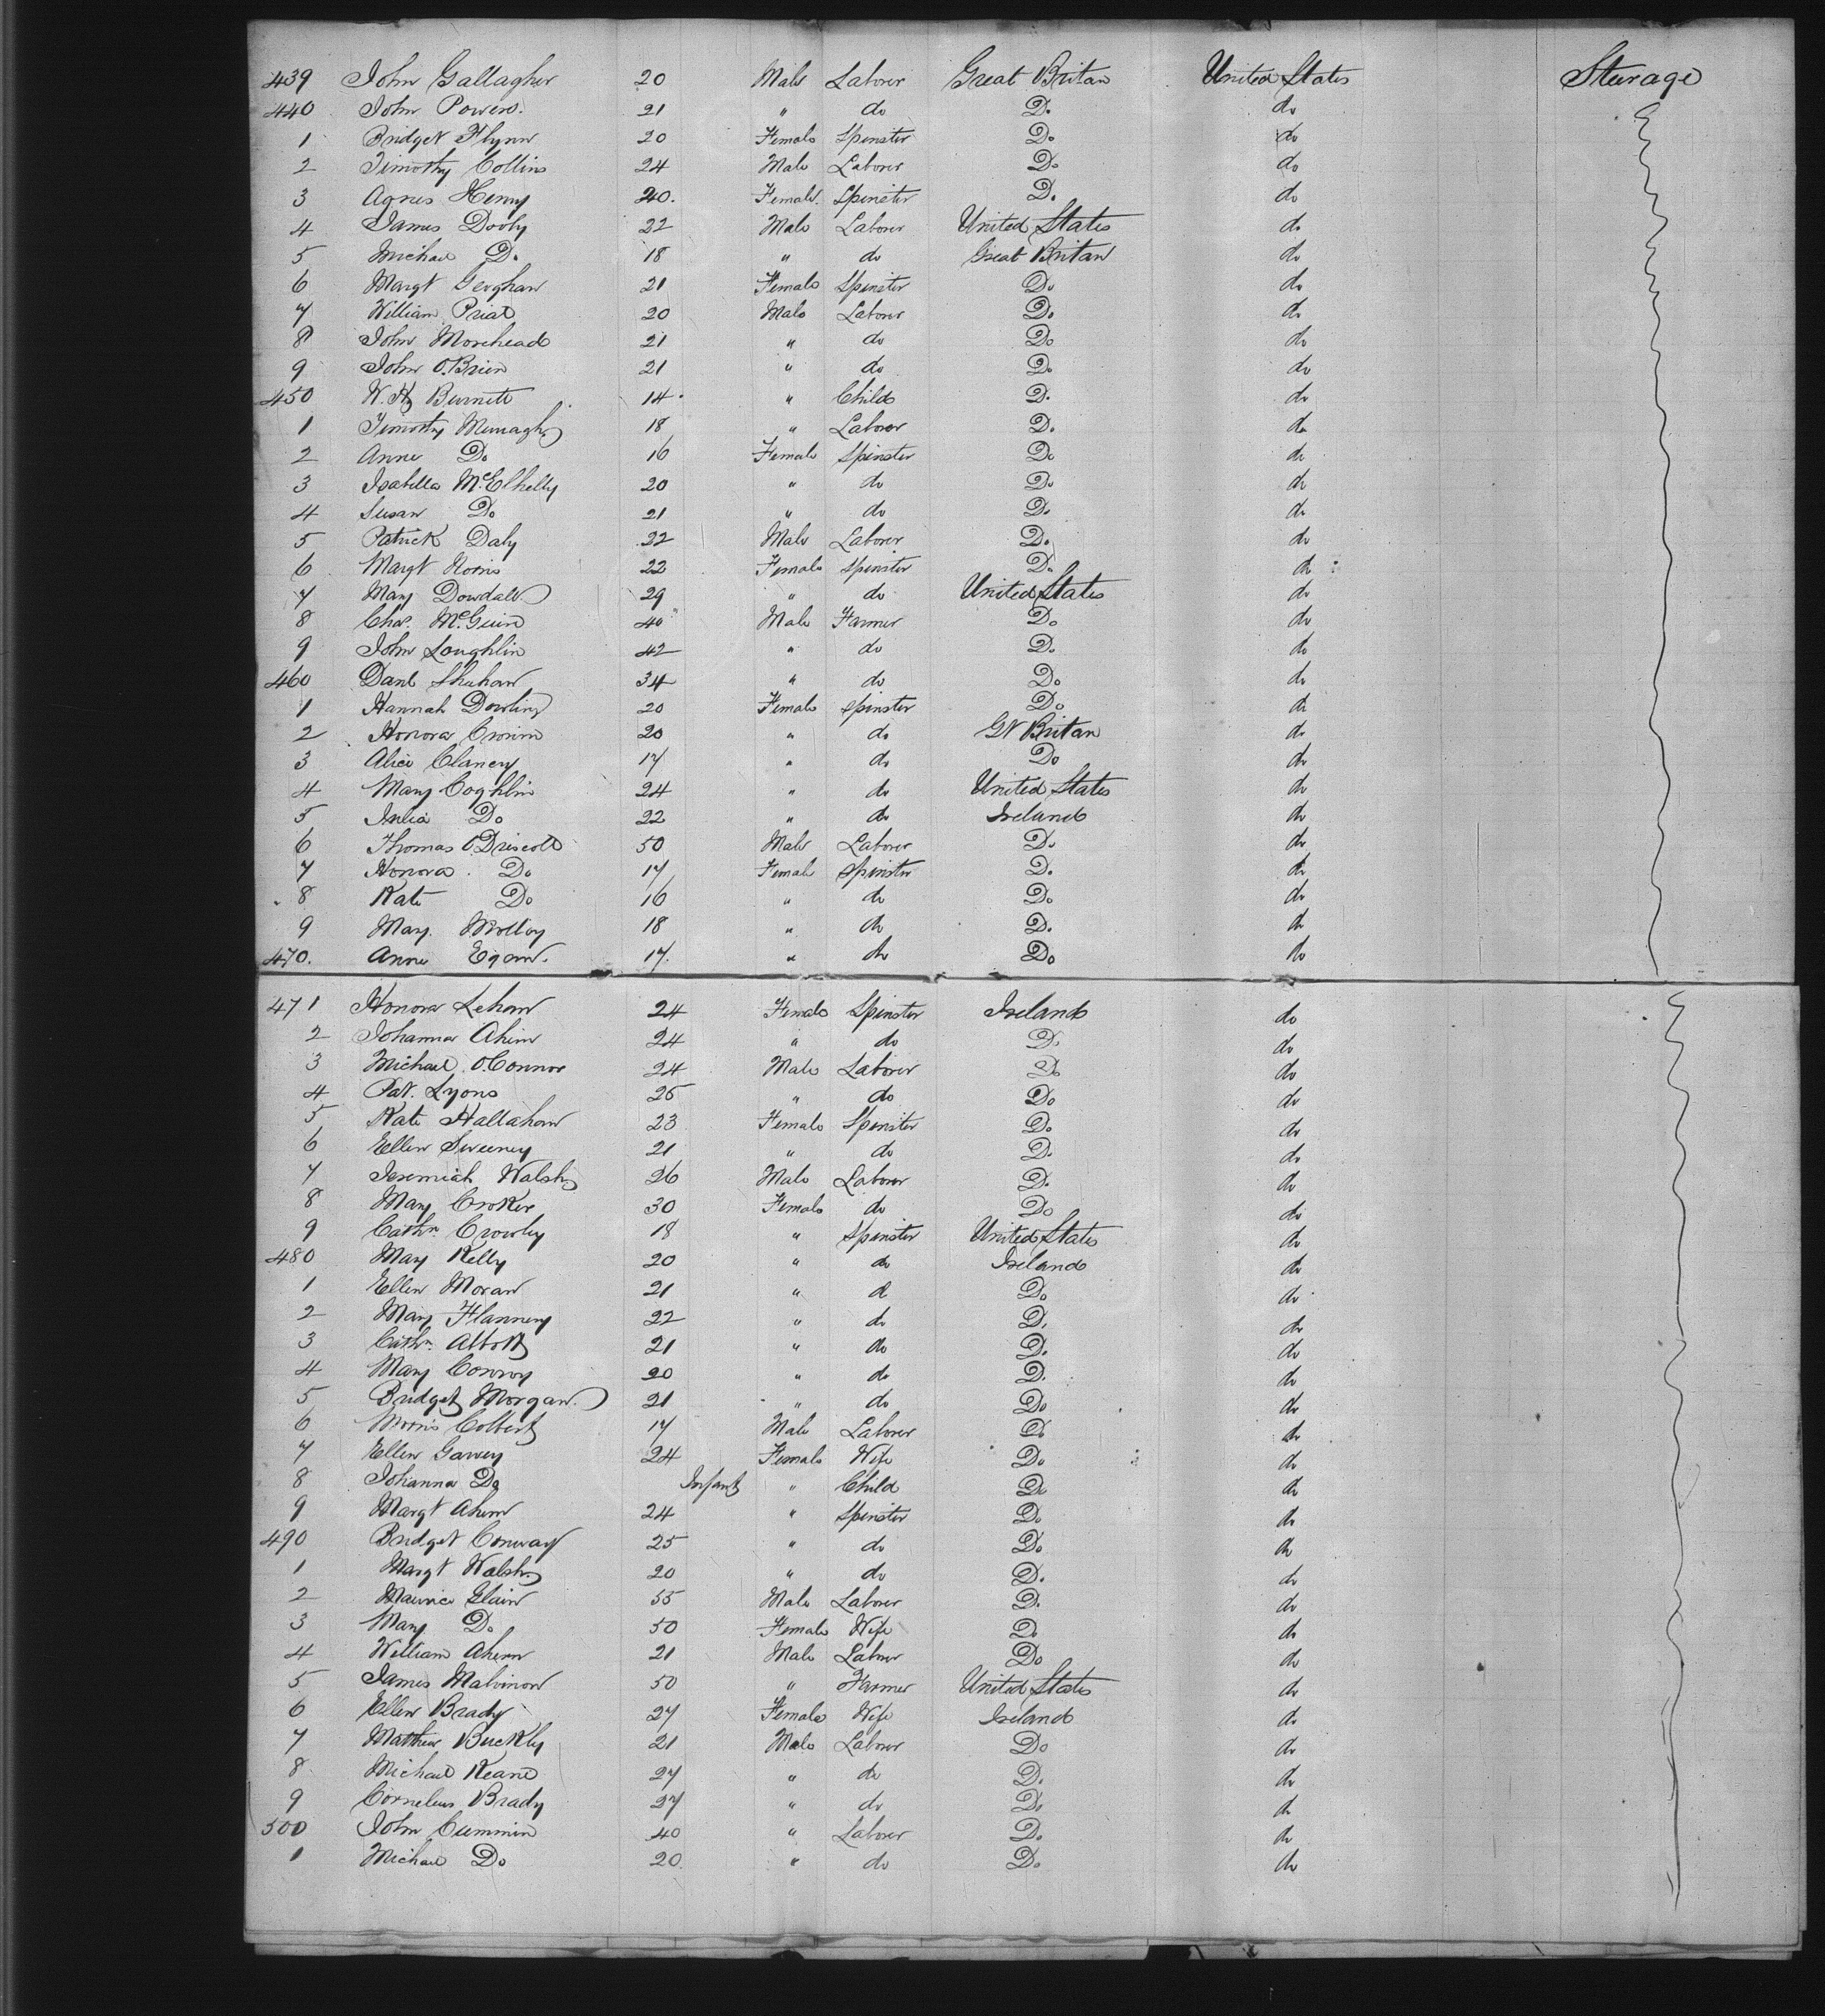 439 John Gallagher 20 Male Laborer Great Britan United States Sturage
440 John Powers. 21 " do Do do
1 Bridget Flynn 20 Female Spinster Do do
2 Timothy Collins 24 Male Laborer Do do
3 Agnes Henry 20. Female. Spinster Do do
4 James Dooly 22 Male Laborer United States do
5 Michae Do 18 " do Great Britan do
6 Margt Geoghan 21 Female Spinster Do do
7 William Priat 20 Male Laborer Do do
8 John Morehead 21 " do Do do
9 John O'Brien 21 " do Do do
450 W. Hy Burnett 14 " Child Do do
1 Timothy 18 " Laborer Do do
2 Anne Do 16 Female Spinster Do do
3 Isabella McElhelly 20 " do Do do
4 Susan Do 21 " do Do do
5 Patrick Daly 22 Male Laborer Do do
6 Margt Norris 22 Female Spinster Do do
7 Mary Dowdall 29 " do United States do
8 Chas. McGuin 40 Male Farmer Do do
9 John Loughlin 42 " do Do do
460 Danl Shuhan 34 " do Do do
1 Hannah Dowling 20 Female Spinster Do do
2 Honora Cronin 20 " do Gt Britan do
3 Alice Clancy 17 " do Do do
4 Mary Coghlin 24 " do United States do
5 Julia Do 22 " do Ireland do
6 Thomas O'Driscoll 50 Male Laborer Do do
7 Honora Do 17 Female Spinster Do do
8 Kate Do 16 " do Do do
9 Mary. Molloy 18 " do Do do
470. Anne Egan. 17. " do Do do
471 Honora Lehan 24 Female Spinster Ireland do
2 Johanna Ahern 24 " do Do do
3 Michael O'Connor 24 Male Laborer Do do
4 Pat. Lyons 25 " do Do do
5 Kate Hallahan 23 Female Spinster Do do
6 Ellen Sweeney 21 " do Do do
7 Jeremiah Walsh 26 Male Laborer Do do
8 Mary Croker 30 Female do Do do
9 Cathn Crowley 18 " Spinster United States do
480 Mary Kelly 20 " do Ireland do
1 Ellen Moran 21 " do Do do
2 Mary Flannery 22 " do Do do
3 Cathn Abbott 21 " do Do do
4 Mary Conroy 20 " do Do do
5 Bridget Morgan. 21 " do Do do
6 Morris Colbert 17 Male Laborer Do do
7 Ellen Garvey 24 Female Wife Do do
8 Johanna Do Infant " Child Do do
9 Margt Ahern 24 " Spinster Do do
490 Bridget Conway 25 " do Do do
1 Margt Walsh 20 " do Do do
2 Maurice Glavin 55 Male Laborer Do do
3 Mary Do 50 Female Wife Do do
4 William Ahern 21 Male Laborer Do do
5 James Malvinon 50 " Farmer United States do
6 Ellen Brady 27 Female Wife Ireland do
7 Matthew Buckly 21 Male Laborer Do do
8 Michael Keane 27 " do Do do
9 Cornelius Brady 27 " do Do do
500 John Cummin 40 " Laborer Do do
1 Michae Do 20 " do Do do